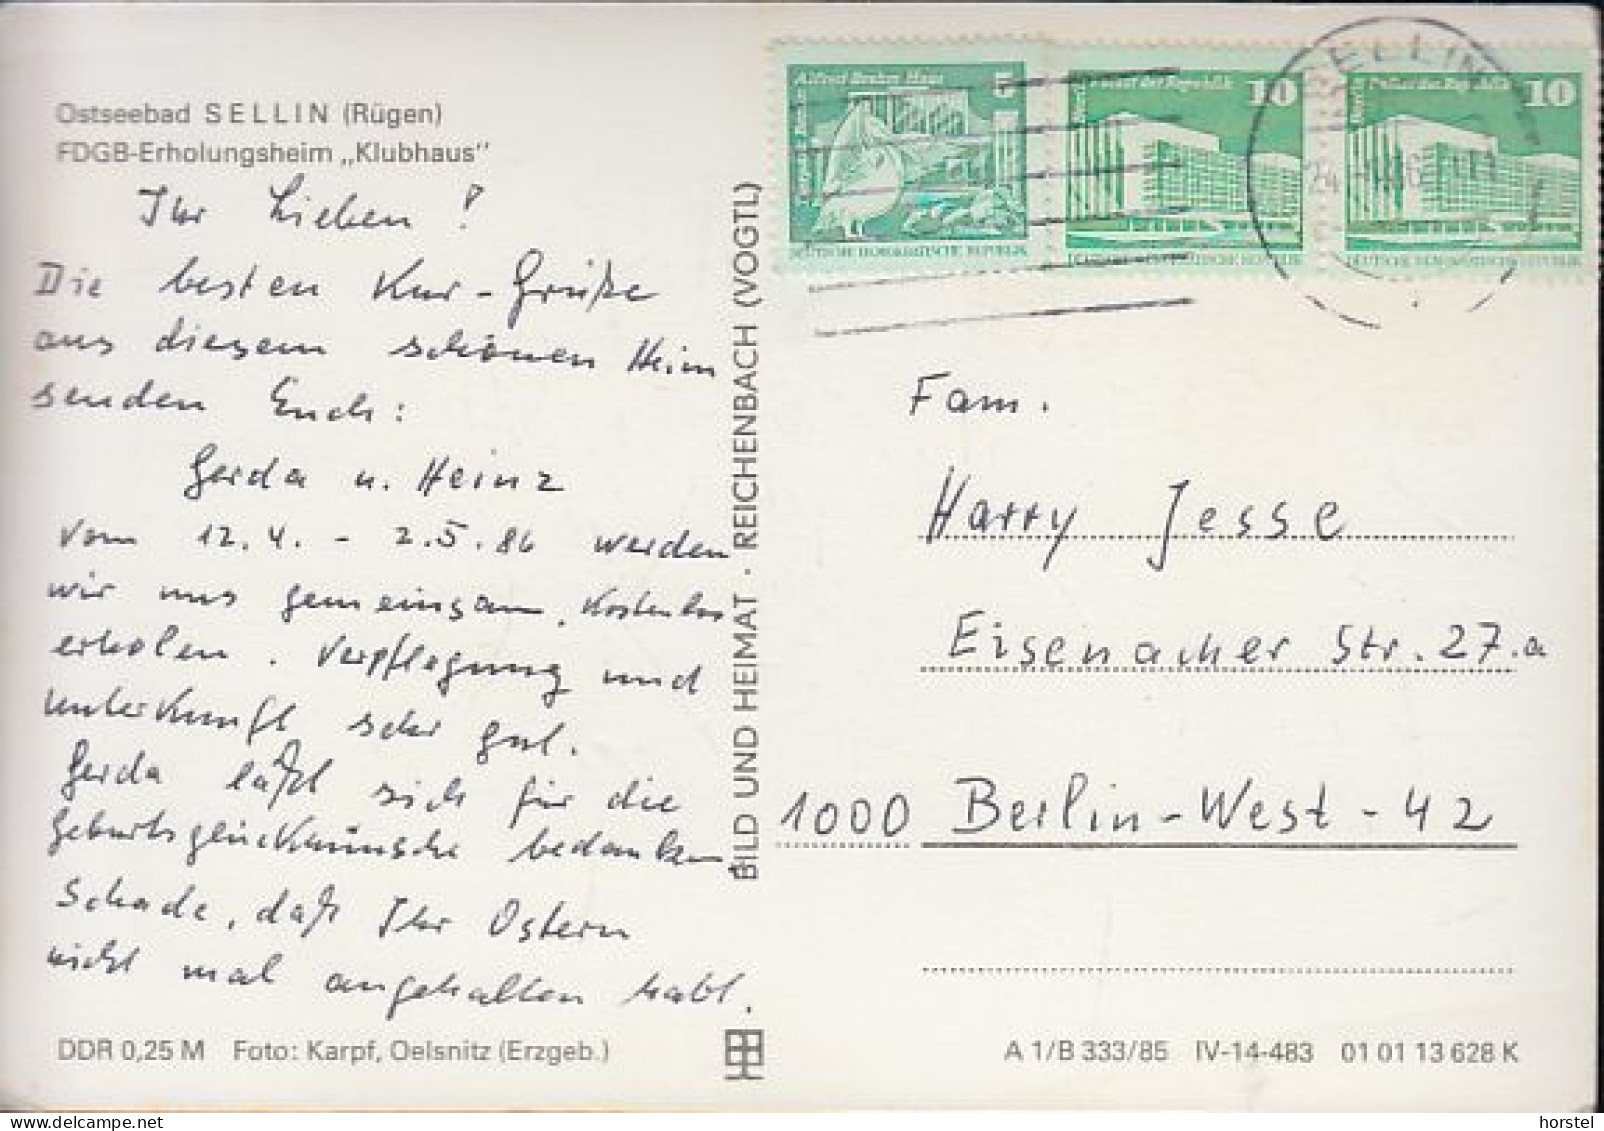 Ostseebad SELLIN (Rügen)
FDGB-Erholungsheim „Klubhaus"
Ihr Lieben!
Die besten Kur-Grüße
aus diesem schönen Heim
senden Euch:
Gerda u. Heinz
Vom 12.4. - 2.5.86 werden
wir uns gemeinsam, kostenlos
erholen. Verpflegung und
Unterkunft sehr gut.
Gerda läßt sich für die
Geburtsglückwünsche bedanken.
Schade, daß Ihr Ostern
nicht mal angehalten habt.
DDR 0,25 M Foto: Karpf, Oelsnitz (Erzgeb.)
BILD UND HEIMAT · REICHENBACH (VOGTL)
Alfred Brehm Haus 5
DEUTSCHE DEMOKRATISCHE REPUBLIK
Palast der Republik 10
DEUTSCHE DEMOKRATISCHE REPUBLIK
Palast der Republik 10
DEUTSCHE DEMOKRATISCHE REPUBLIK
SELLIN
Fam.
Harry Jesse
Eisenacher Str. 27.a
1000 Berlin-West-42
A 1/B 333/85 IV-14-483 01 01 13 628 K
horstel - www.delcampe.net